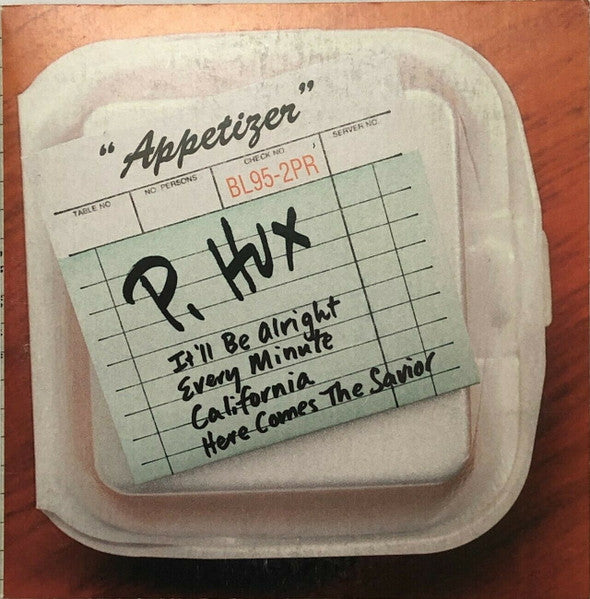 "Appetizer"
TABLE NO. NO. PERSONS CHECK NO. SERVER NO.
BL95-2PR
P. HUX
It'll Be Alright
Every Minute
California
Here Comes The Savior